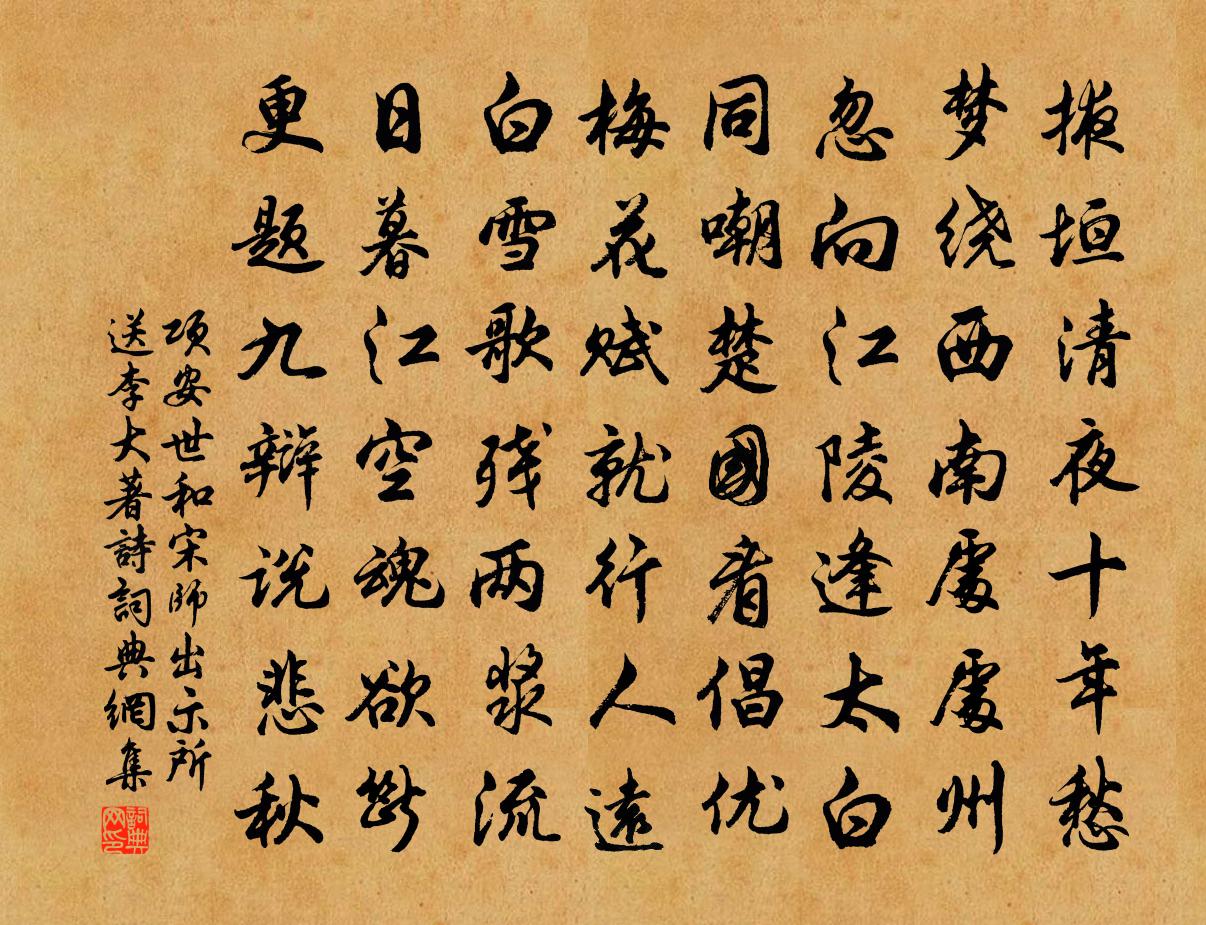 掖垣清夜十年愁
梦绕西南處處州
忽向江陵逢太白
同嘲楚國看倡优
梅花赋就行人遠
白雪歌残两桨流
日暮江空魂欲斷
更题九辩说悲秋
项安世和宋師出示所
送李大著詩詞典網集
詞典网印